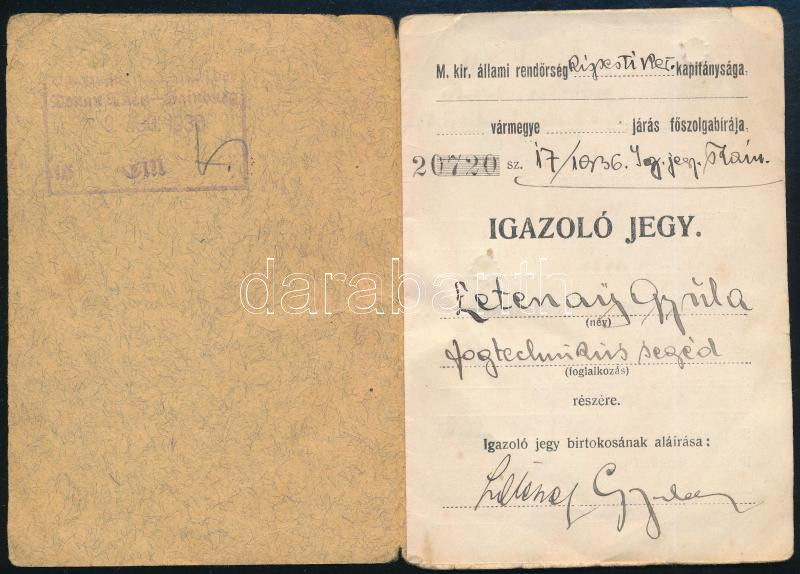 1939
M. kir. állami rendőrség Kispesti ker. kapitánysága.
vármegye járás főszolgabírája.
20720 sz. 17/1936. Ig. jegy. szám.
IGAZOLÓ JEGY.
darabanth.com
Letenay Gyula
(név)
fogtechnikus segéd
(foglalkozás)
részére.
Igazoló jegy birtokosának aláírása:
Letenay Gyula